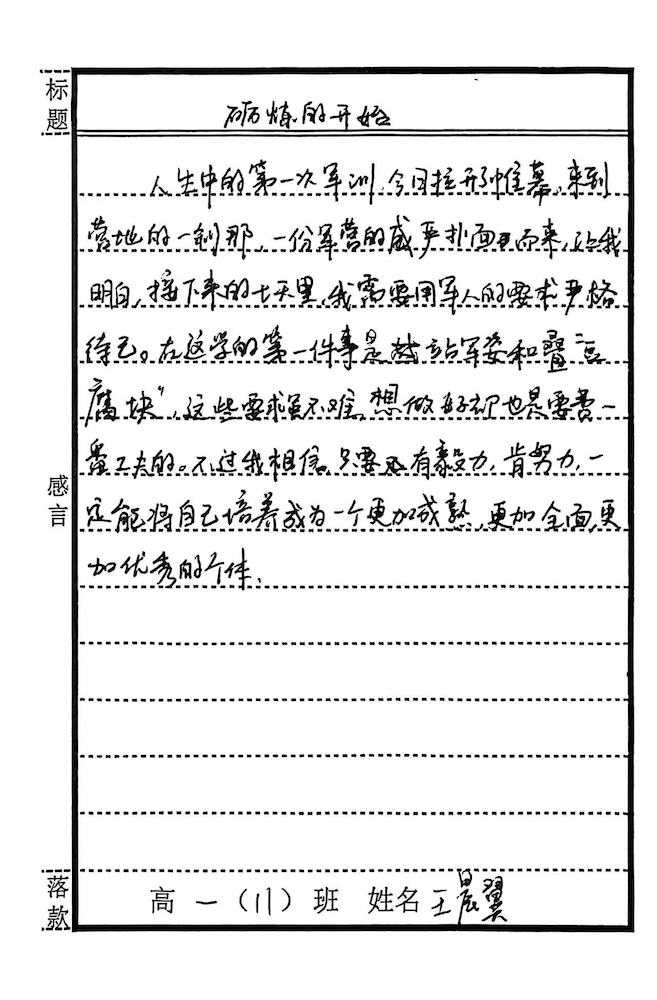 标题
砺炼的开始
人生中的第一次军训,今日拉开帷幕,来到
营地的一刹那,一份军营的威严扑面而来,让我
明白,接下来的七天里,我需要用军人的要求严格
待己。在这学的第一件事是站军姿和叠“豆
腐块”,这些要求虽不难,想做好却也是需费一
番工夫的。不过我相信,只要有毅力,肯努力,一
定能将自己培养成为一个更加成熟,更加全面,更
加优秀的个体.
感言
落款
高一(11)班 姓名 王晨翼